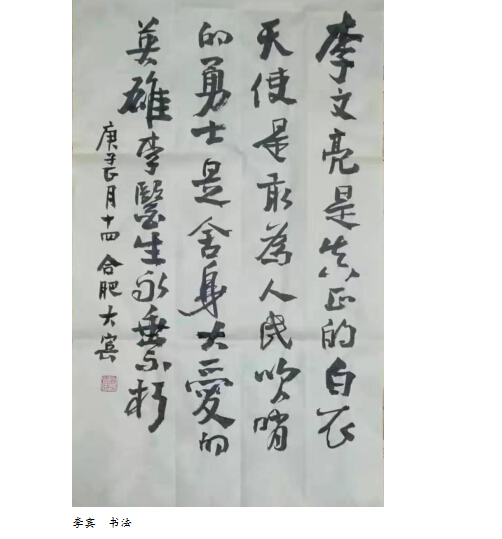 李文亮是真正的白衣
天使是敢為人民吹哨
的勇士是舍身大愛的
英雄李醫生永垂不朽
庚子正月十四 合肥大賓
李宾 书法